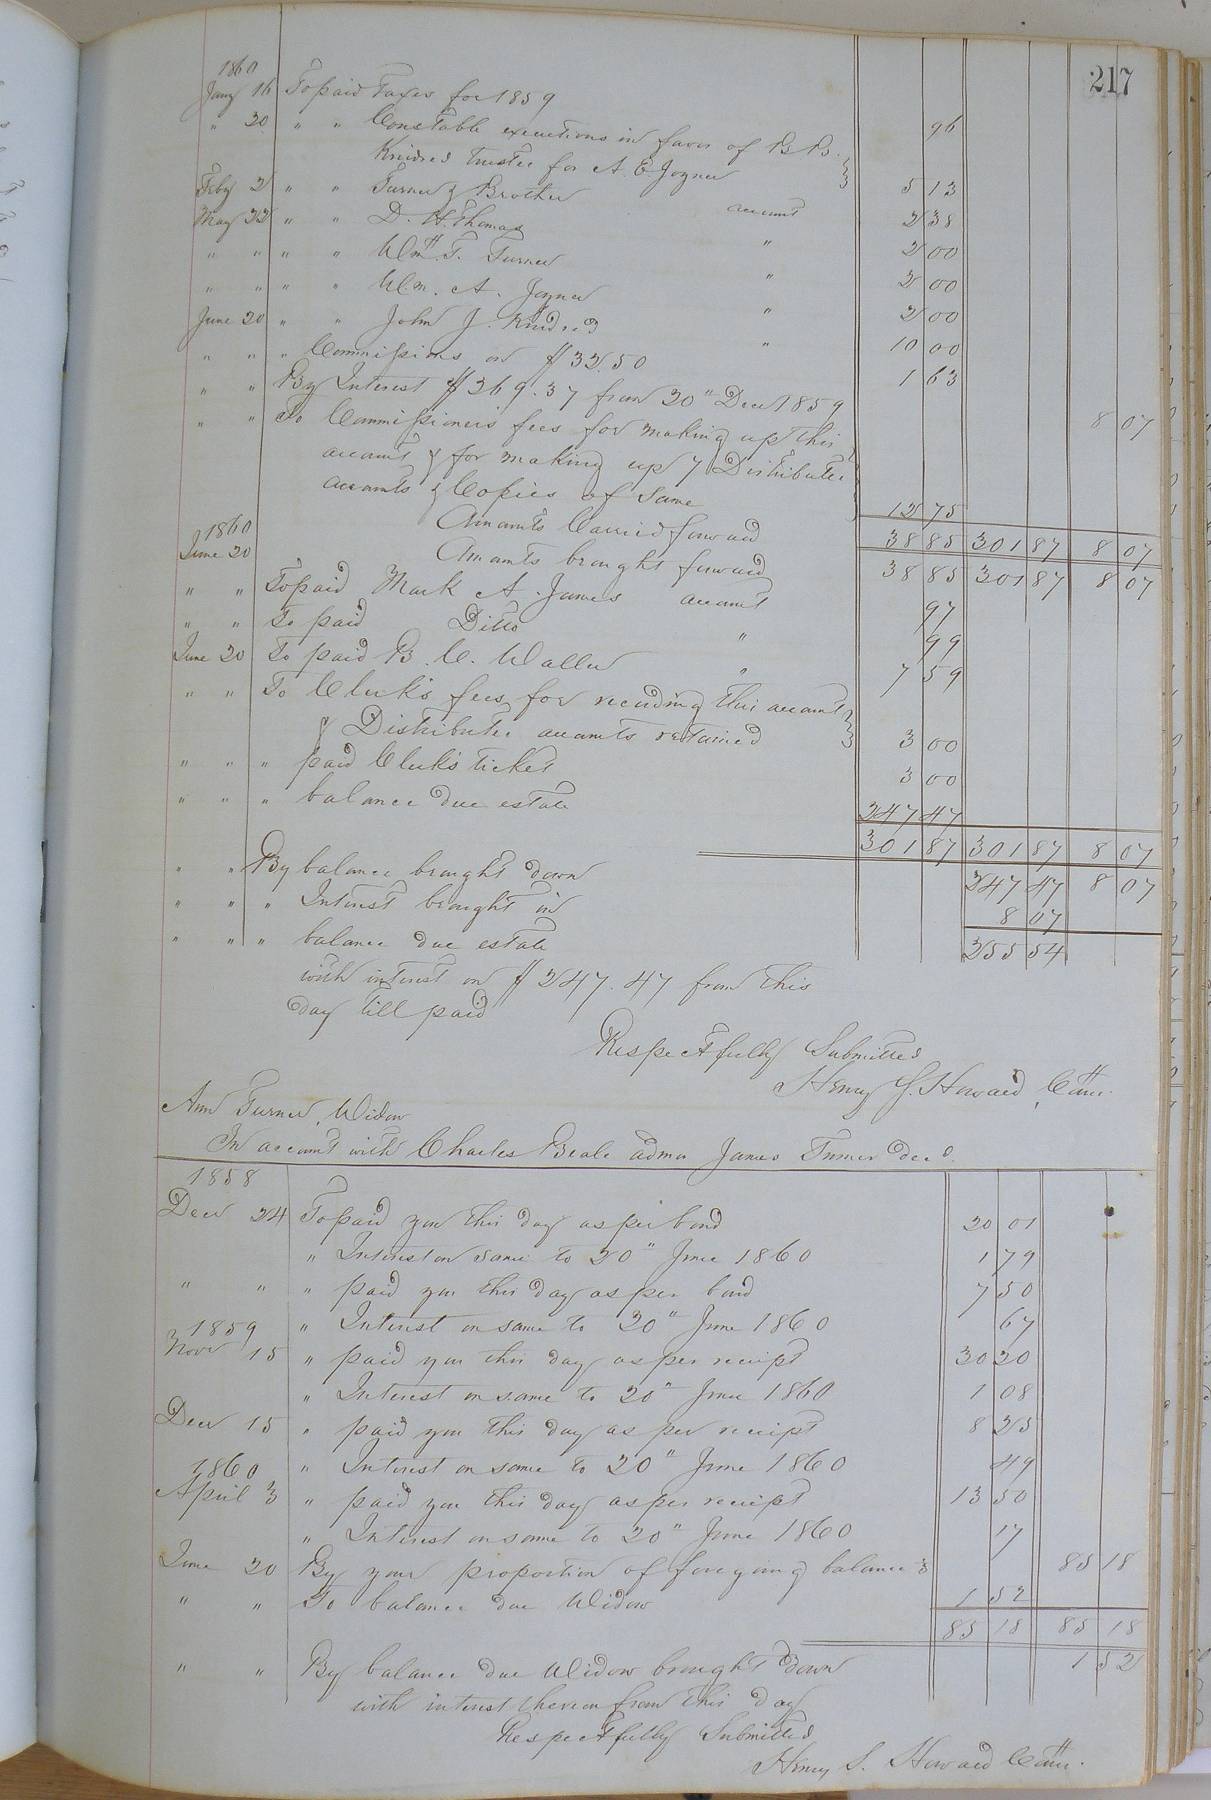 217
1860
Jany 16 To paid Taxes for 1859 96
" 20 " " Constable executions in favor of B. B.
Kindred trustee for A. E. Joyner 5 13
Feby 2 " " Turner & Brother account 2 38
May 22 " " D. H. Thomas " 2 00
" " " " Wm H. T. Turner " 2 00
" " " " Wm. A. Joyner " 2 00
June 20 " " John J. Kindred " 10 00
" " " Commissions on $32.50 1 63
" " By Interest $269.37 from 20" Decr 1859 8 07
" " To Commissioners fees for making up this
account & for making up 7 Distributee
accounts & Copies of Same 12 75
Amounts Carried forward 38 85 301 87 8 07
1860
June 20 Amounts brought forward 38 85 301 87 8 07
" " To paid Mark A. James account 97
" " To paid Ditto " 99
June 20 To paid B. C. Waller " 7 59
" " To Clerk's fees for recording this account
& Distributee accounts returned 3 00
" " " paid Clerk's ticket 3 00
" " " balance due estate 247 47
301 87 301 87 8 07
" " By balance brought down 247 47 8 07
" " " Interest brought in 8 07
" " " balance due estate 255 54
with interest on $247.47 from this
day till paid
Respectfully Submitted
Henry S. Howard, Comr.
Ann Turner, Widow
In account with Charles Beale admr James Turner decd.
1858
Decr 24 To paid you this day as per bond 20 01
" Interest on same to 20" June 1860 1 79
" " " paid you this day as per bond 7 50
" Interest on same to 20" June 1860 67
1859
Novr 15 " paid you this day as per receipt 30 20
" Interest on same to 20" June 1860 1 08
Decr 15 " paid you this day as per receipt 8 25
" Interest on same to 20" June 1860 49
1860
April 3 " paid you this day as per receipt 13 50
" Interest on same to 20" June 1860 17
June 20 By your proportion of foregoing balance 85 18
" " To balance due Widow 1 52
85 18 85 18
" " By balance due Widow brought down 1 52
with interest thereon from this day
Respectfully Submitted
Henry S. Howard Comr.